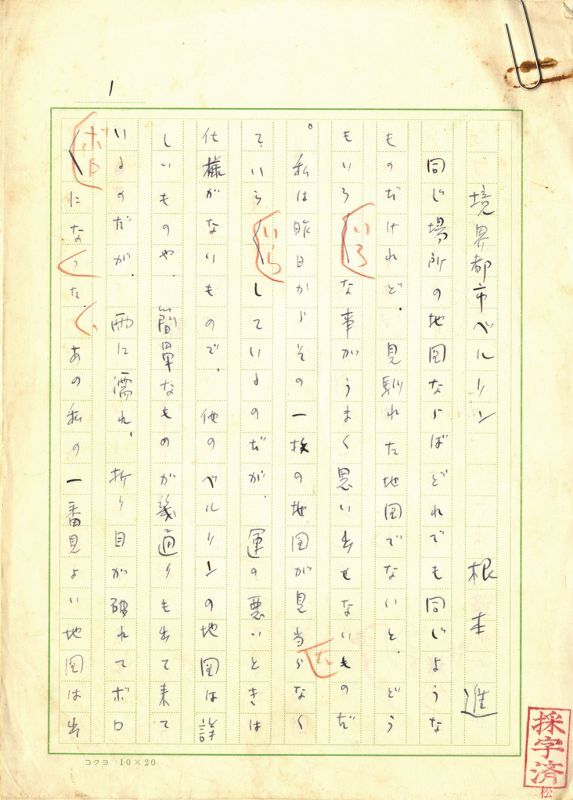 1
境界都市ベルリン 根本進
同じ場所の地図ならばどれでも同じような
ものだけれど、見馴れた地図でないと、どう
もいろ〱な事がうまく思い出せないものだ
いろ
。私は昨日からその一枚の地図が見当らなく
た
ていら〱しているのだが、運の悪いときは
いら
仕様がないもので、他のベルリンの地図は詳
しいものや 簡単なものが幾通りも出て来て
いるのだが 雨に濡れ、折り目が破れてボロ
〱になった、あの私の一番見よい地図は出
ボロ
コクヨ 10×20
採字済
松